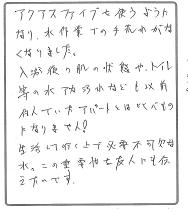 アクアスファイブを使うように
なり、水作業での手荒れがな
くなりました。
入浴後の肌の状態や、トイレ
等の水アカ汚れなども以前
住んでいたアパートとはくらべもの
になりません!
生活して行く上で必要不可欠な
水。この重要性を友人にも伝
えたいです。